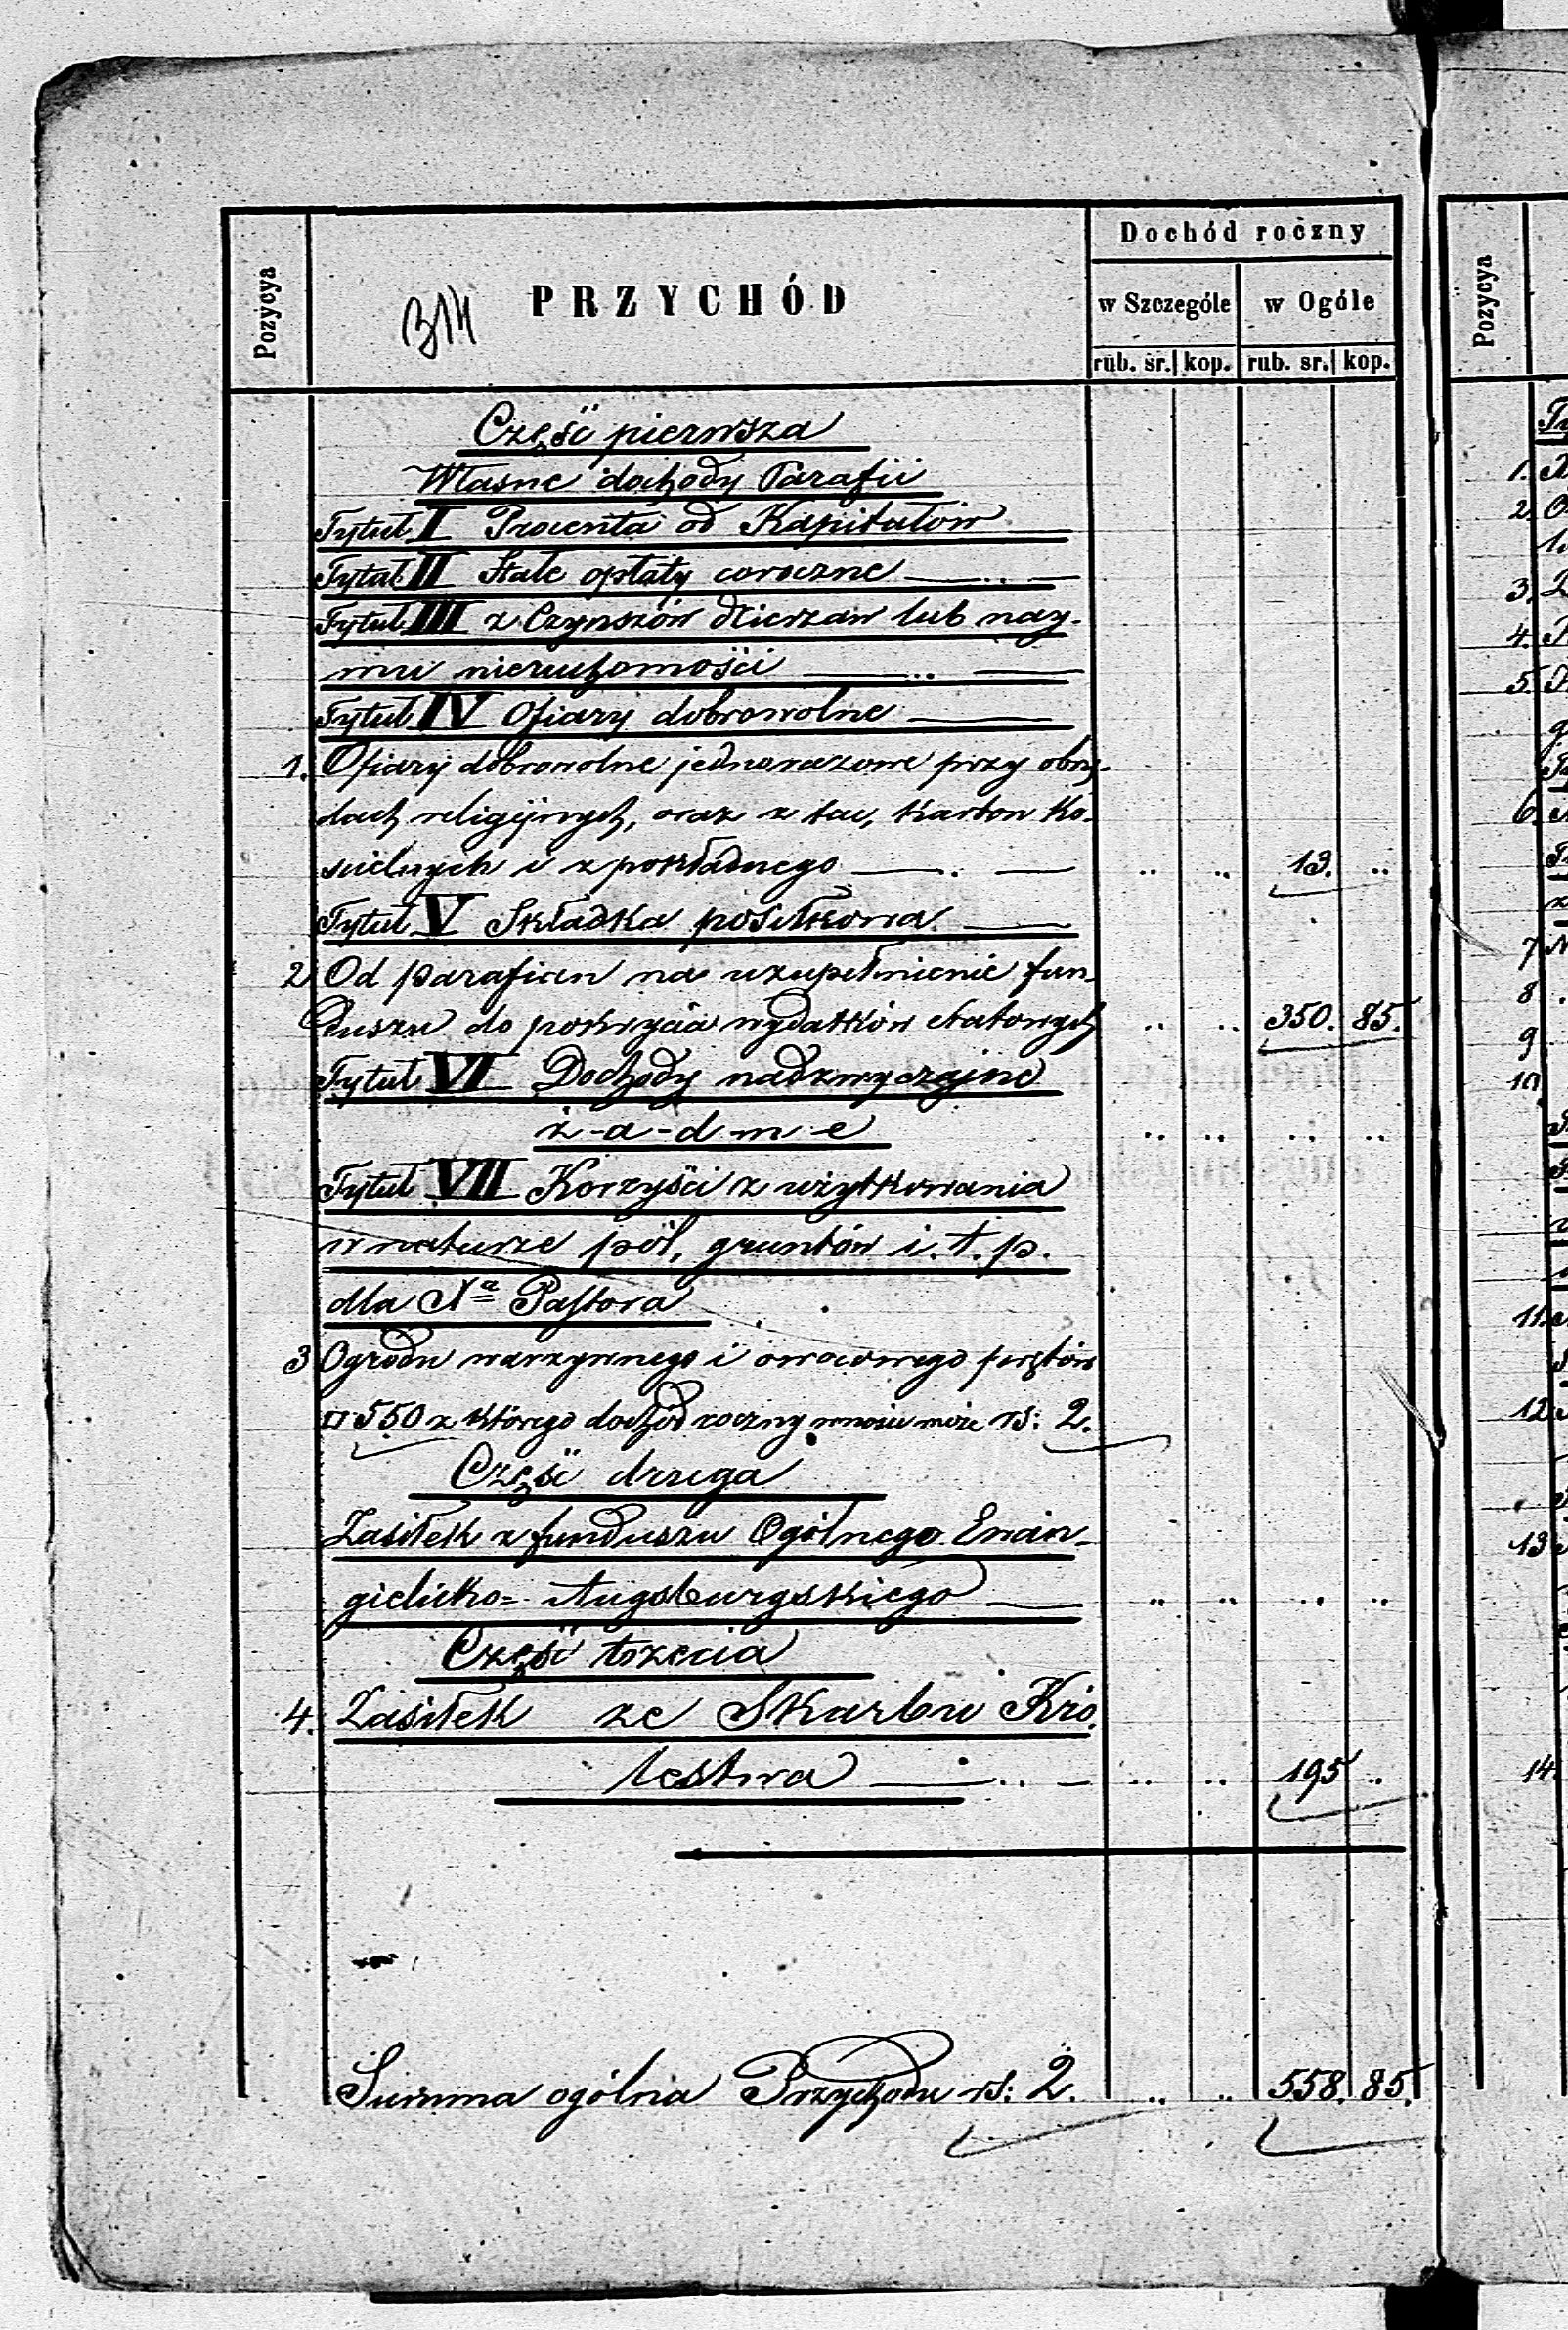 Pozycya
314
PRZYCHÓD
Dochód roczny
w Szczególe
w Ogóle
rub. sr. kop. rub. sr. kop.
Pozycya
Część pierwsza
Własne dochody Parafii
Tytuł I Procenta od Kapitałów
Tytuł II Stałe opłaty coroczne
Tytuł III z Czynszów dzierżaw lub nay-
mu nieruchomości
Tytuł IV Ofiary dobrowolne
1. Ofiary dobrowolne jednorazowe przy obrzę-
dach religijnych, oraz z tac, karbon ko-
ścielnych i z pokładnego 13.
Tytuł V Składka posiłkowa
2 Od parafian na uzupełnienie fun-
duszu do pokrycia wydatków etatowych 350. 85.
Tytuł VI Dochody nadzwyczajne
ż-a-d-n-e
Tytuł VII Korzyści z użytkowania
w naturze pól, gruntów i.t.p.
dla Pastora
3 Ogrodu warzywnego i owocowego prętów
□ 550 z którego dochód roczny wnosić może rs: 2.
Część druga
Zasiłek z funduszu Ogólnego Ewan-
gielicko=Augsburgskiego
Część trzecia
4. Zasiłek ze Skarbu Kró-
lestwa 195
Summa ogólna Przychodu rs: 2. 558. 85.
1.
2.
3.
4.
5.
6.
7
8
9
10
11.
12
13
14.